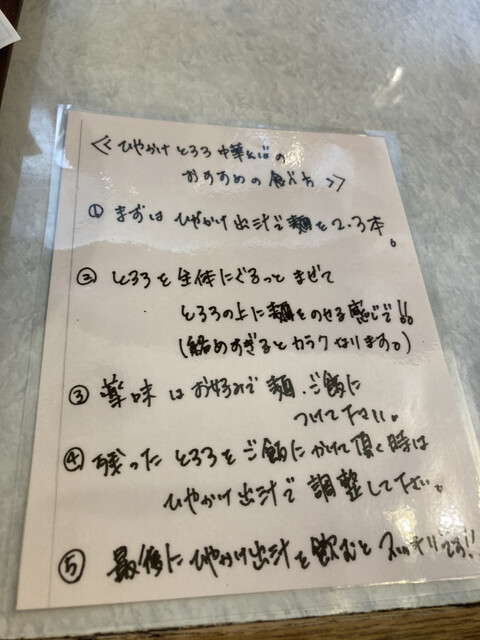 ≪ひやかけとろろ中華そばの
おすすめの食べ方≫
① まずはひやかけ出汁で麺を2.3本。
② とろろを全体にぐるっとまぜて
とろろの上に麺をのせる感じで!!
(絡めすぎるとカラクなります。)
③ 薬味はお好みで麺、ご飯に
つけて下さい。
④ 残ったとろろをご飯にかけて頂く時は
ひやかけ出汁で調整して下さい。
⑤ 最後にひやかけ出汁を飲むとスッキリです!!